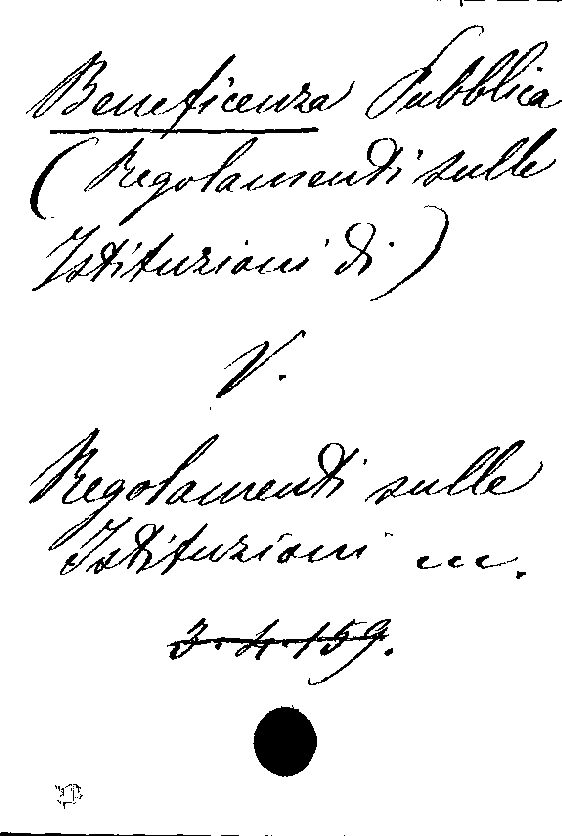 Beneficenza Pubblica
(Regolamenti sulle
Istituzioni di)
V.
Regolamenti sulle
Istituzioni ecc.
3.4.159.